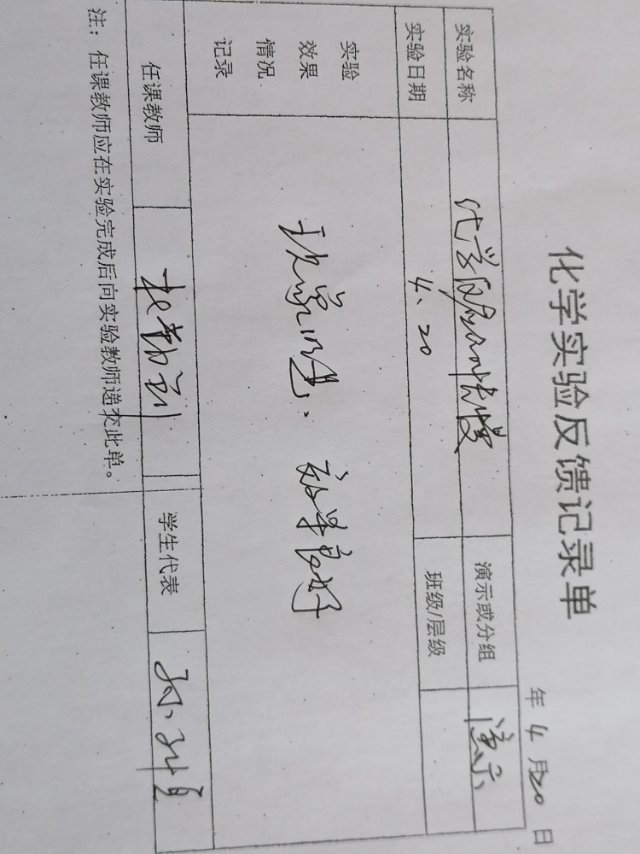 化学实验反馈记录单
年 4 月 20 日
实验名称 化学反应的快慢 演示或分组 演示
实验日期 4、20 班级/层级
实验
效果
情况
记录
现象明显、效果良好
任课教师 学生代表
注：任课教师应在实验完成后向实验教师递交此单。